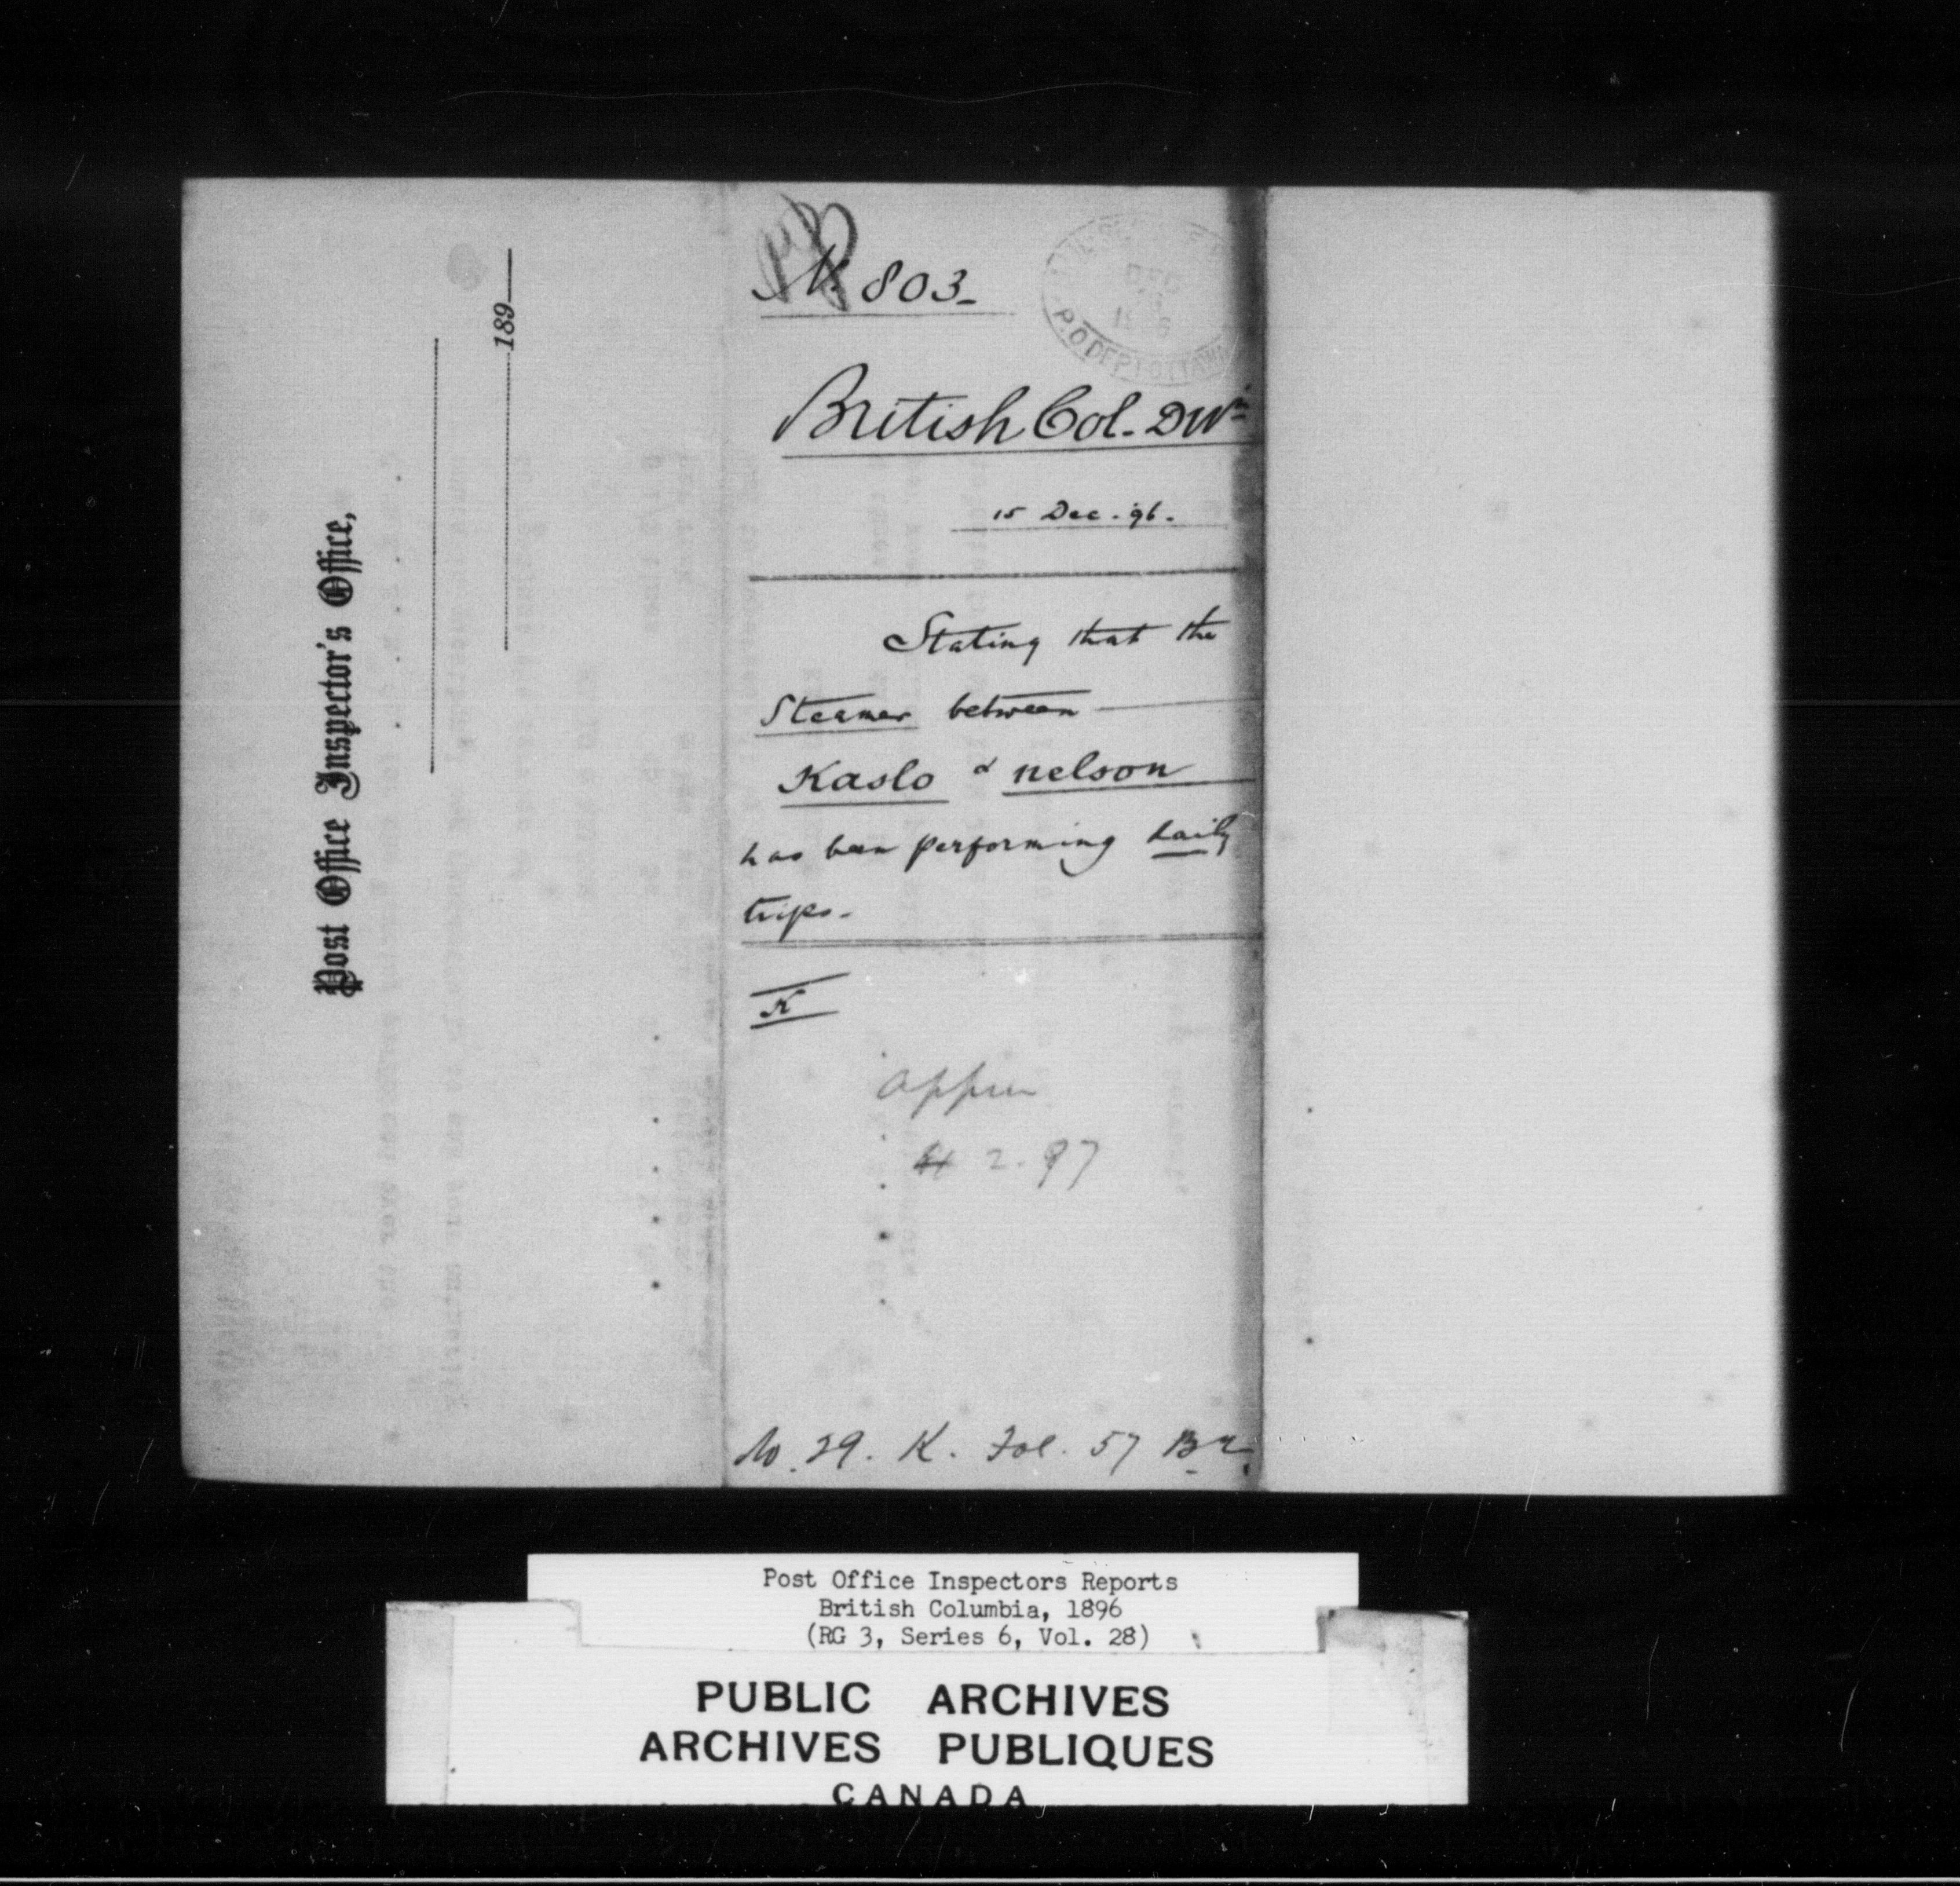 Post Office Inspector's Office,
189
N. 803-
DEC
P.O DEPT OTTAWA
British Col. Divn
15 Dec. 96.
Stating that the
Steamer between
Kaslo & Nelson
has been performing daily
trips.
K
2.97
No. 29. K. Fol. 57
Post Office Inspectors Reports
British Columbia, 1896
(RG 3, Series 6, Vol. 28)
PUBLIC ARCHIVES
ARCHIVES PUBLIQUES
CANADA